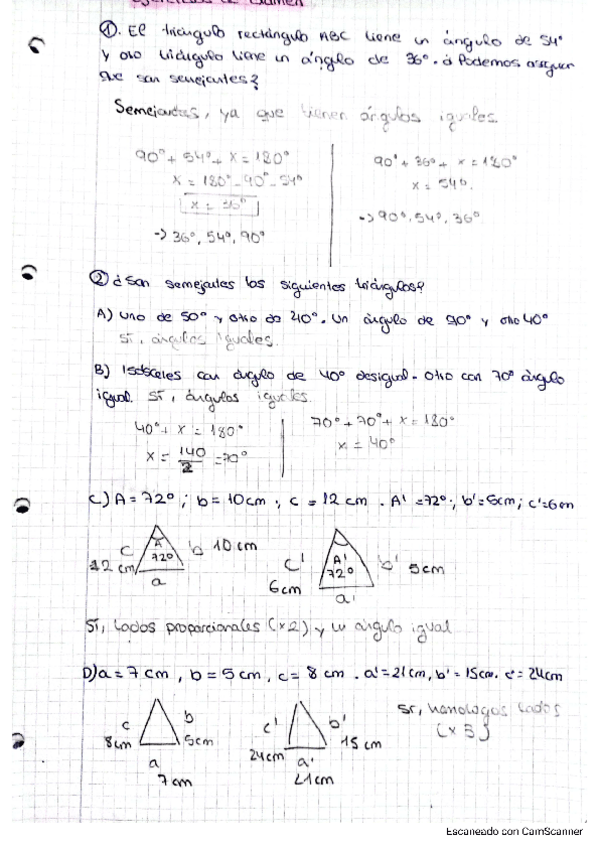 Ejercicios de Examen
①. El triángulo rectángulo ABC tiene un ángulo de 54º
y otro triángulo tiene un ángulo de 36º. ¿Podemos asegurar
que son semejantes?
Semejantes, ya que tienen ángulos iguales.
90º + 54º + x = 180º
x = 180º - 90º - 54º
x = 36º
-> 36º, 54º, 90º
90º + 36º + x = 180º
x = 54º.
-> 90º, 54º, 36º
② ¿Son semejantes los siguientes triángulos?
A) Uno de 50º y otro de 40º. Un ángulo de 90º y otro 40º
Sí, ángulos iguales.
B) Isósceles con ángulo de 40º desigual. Otro con 70º ángulo
igual. Sí, ángulos iguales.
40º + x = 180º
x = 140/2 = 70º
70º + 70º + x = 180º
x = 40º
C) A = 72º ; b = 10 cm ; c = 12 cm . A' = 72º ; b' = 5cm ; c' = 6cm
c A b 10 cm
12 cm 72º
a
c' A' b' 5cm
6cm 72º
a'
Sí, lados proporcionales (x2) y un ángulo igual
D) a = 7 cm , b = 5 cm , c = 8 cm . a' = 21 cm, b' = 15cm. c' = 24cm
c b
8cm 5cm
a
7 cm
c' b'
24cm 15 cm
a'
21cm
Sí, homólogos lados
(x 3)
Escaneado con CamScanner